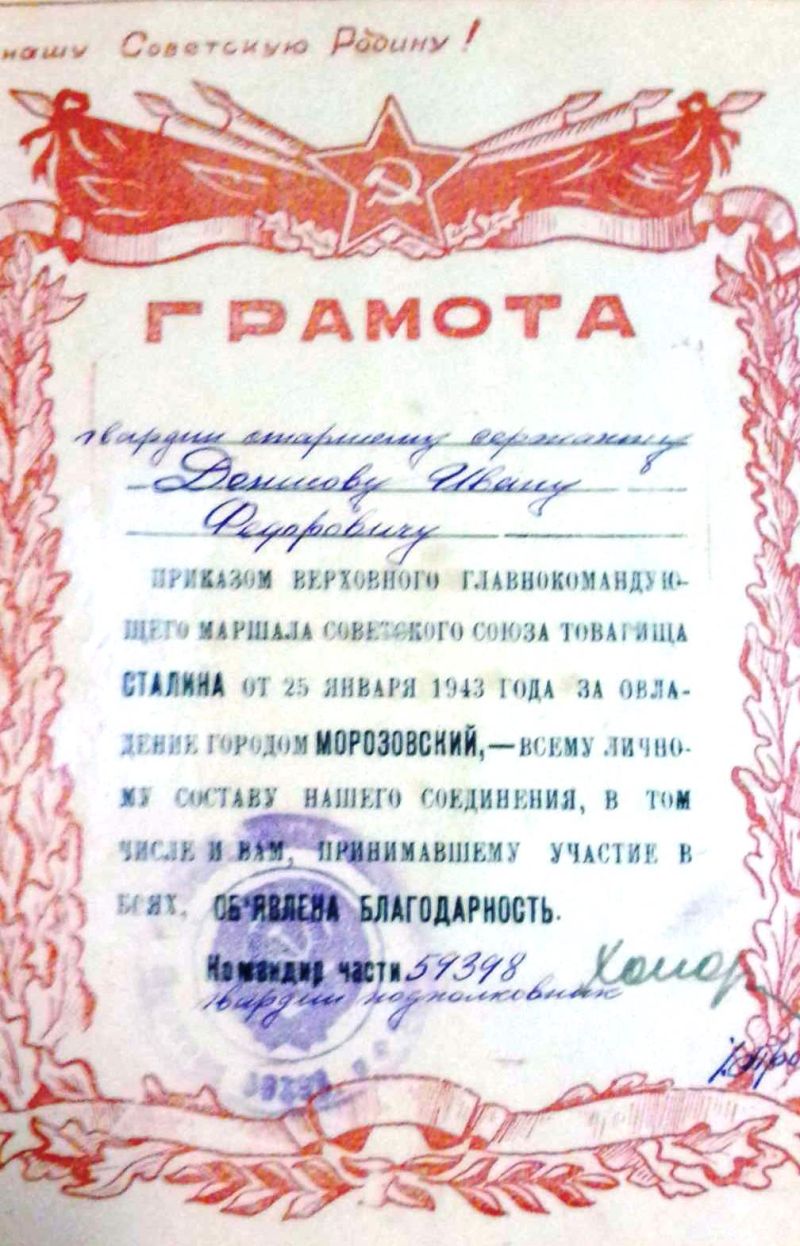 нашу Советскую Родину!
ГРАМОТА
гвардии старшему сержанту
Денисову Ивану
Федоровичу
ПРИКАЗОМ ВЕРХОВНОГО ГЛАВНОКОМАНДУЮ-
ЩЕГО МАРШАЛА СОВЕТСКОГО СОЮЗА ТОВАРИЩА
СТАЛИНА ОТ 25 ЯНВАРЯ 1943 ГОДА ЗА ОВЛА-
ДЕНИЕ ГОРОДОМ МОРОЗОВСКИЙ,—ВСЕМУ ЛИЧНО-
МУ СОСТАВУ НАШЕГО СОЕДИНЕНИЯ, В ТОМ
ЧИСЛЕ И ВАМ, ПРИНИМАВШЕМУ УЧАСТИЕ В
БОЯХ, ОБ'ЯВЛЕНА БЛАГОДАРНОСТЬ.
Командир части 59398
гвардии подполковник